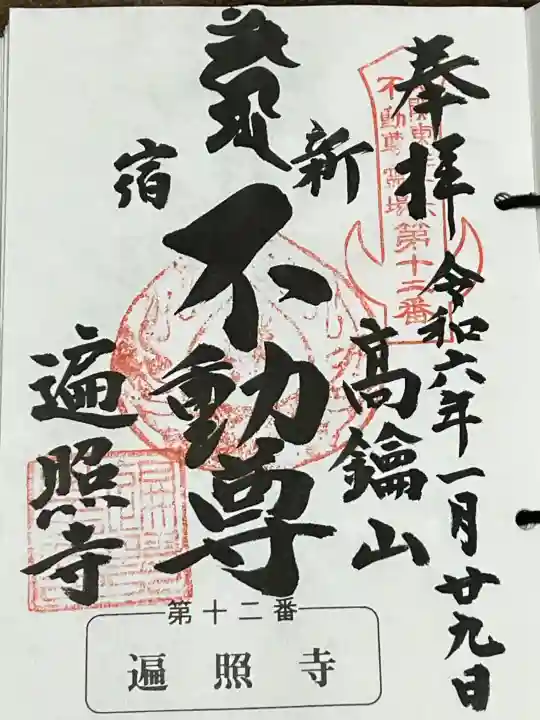 奉拝
令和六年一月廿九日
関東三十六
不動尊霊場
第十二番
高鑰山
新宿
不動尊
遍照寺
第十二番
遍照寺